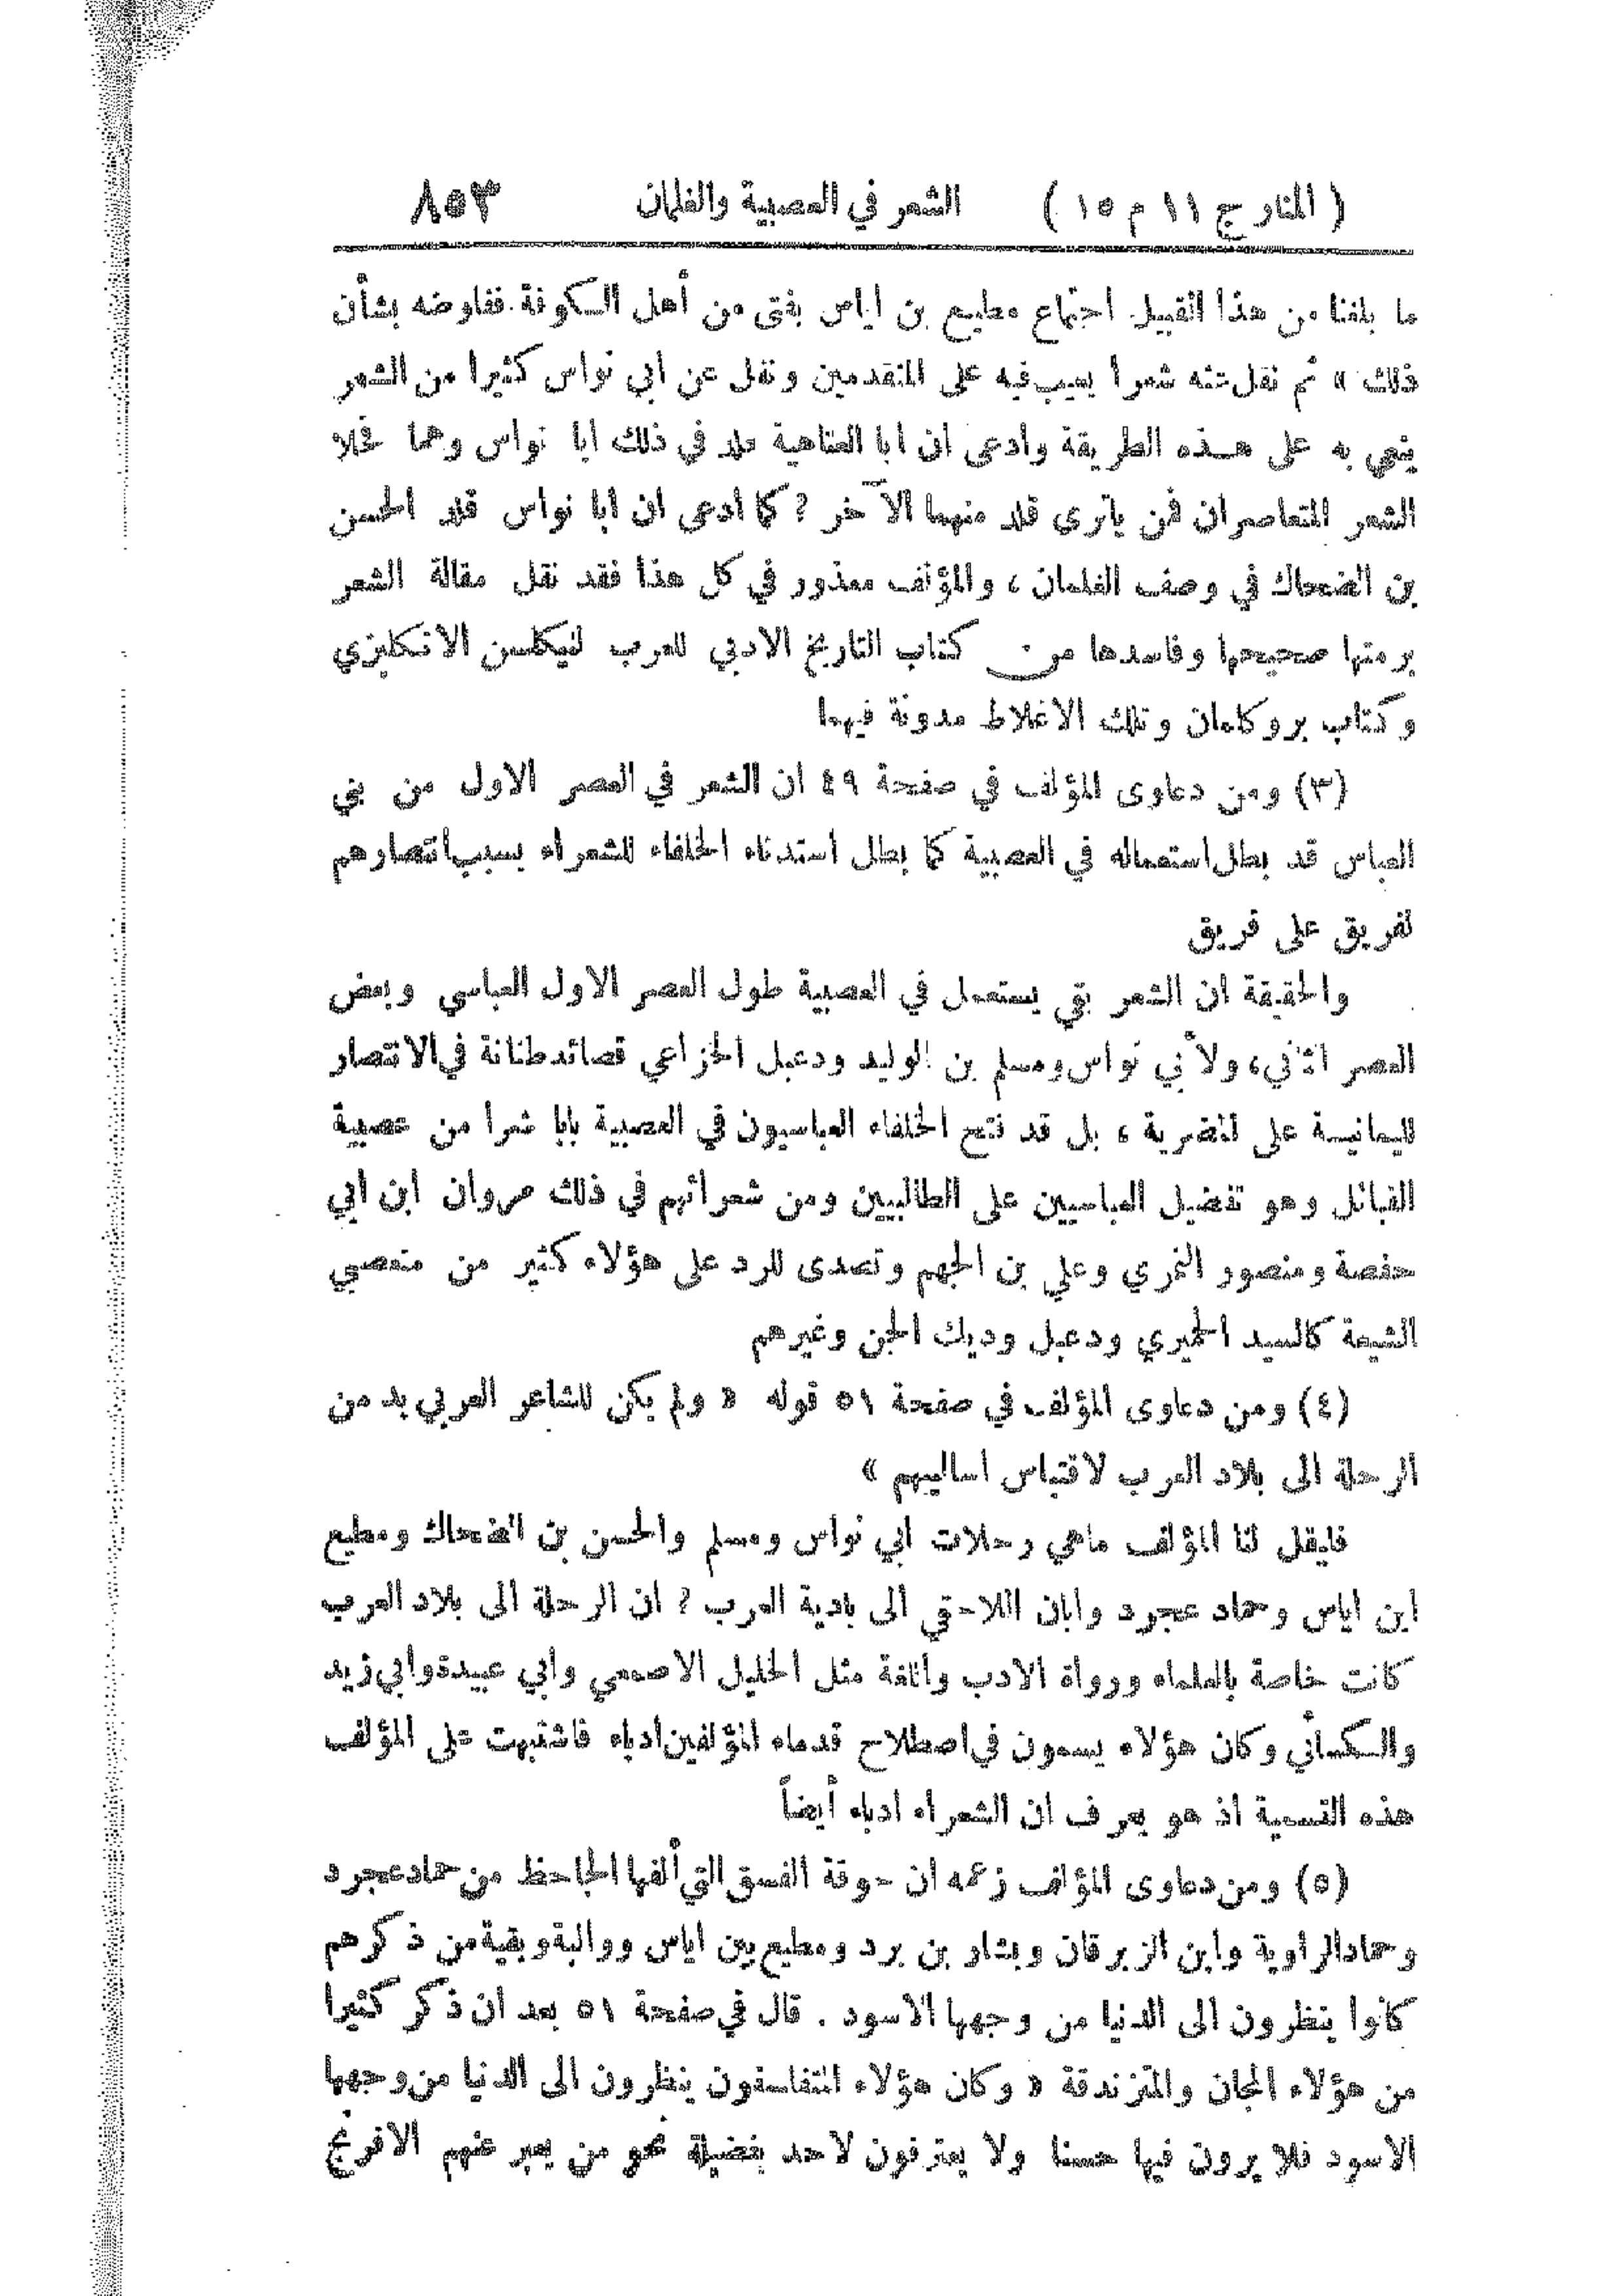 ( المنار ج ١١ م ١٥ ) الشعر في العصبية والغلمان ٨٥٣
ما بلغنا من هذا القبيل اجتماع مطيع بن اياس بفتى من أهل الكوفة ففاوضه بشأن
ذلك » ثم نقل عنه شعرا يعيب فيه على المتقدمين ونقل عن ابي نواس كثيرا من الشعر
ينحي به على هذه الطريقة وادعى ان ابا العتاهية قلد في ذلك ابا نواس وهما فحلا
الشعر المتعاصران فمن ياترى قلد منهما الآخر ? كما ادعى ان ابا نواس قلد الحسن
بن الضحاك في وصف الغلمان ، والمؤلف معذور في كل هذا فقد نقل مقالة الشعر
برمتها صحيحها وفاسدها من كتاب التاريخ الادبي للعرب لنيكلسن الانكليزي
وكتاب بروكلمان وتلك الاغلاط مدونة فيهما
(٣) ومن دعاوى المؤلف في صفحة ٤٩ ان الشعر في العصر الاول من بني
العباس قد بطل استعماله في العصبية كما بطل استدناء الخلفاء للشعراء بسبب انتصارهم
لفريق على فريق
والحقيقة ان الشعر بقي يستعمل في العصبية طول العصر الاول العباسي وبعض
العصر الثاني ، ولأبي نواس ومسلم بن الوليد ودعبل الخزاعي قصائد طنانة في الانتصار
لليمانية على المضرية ، بل قد فتح الخلفاء العباسيون في العصبية بابا شرا من عصبية
القبائل وهو تفضيل العباسيين على الطالبيين ومن شعرائهم في ذلك مروان ابن ابي
حفصة ومنصور النمري وعلي بن الجهم وتصدى للرد على هؤلاء كثير من متعصبي
الشيعة كالسيد الحميري ودعبل وديك الجن وغيرهم
(٤) ومن دعاوى المؤلف في صفحة ٥١ قوله « ولم يكن للشاعر العربي بد من
الرحلة الى بلاد العرب لاقتباس اساليبهم »
فليقل لنا المؤلف ماهي رحلات ابي نواس ومسلم والحسن بن الضحاك ومطيع
ابن اياس وحماد عجرد وابان اللاحقي الى بادية العرب ? ان الرحلة الى بلاد العرب
كانت خاصة بالعلماء ورواة الادب واللغة مثل الخليل الاصمعي وابي عبيدة وابي زيد
والكسائي وكان هؤلاء يسمون في اصطلاح قدماء المؤلفين أدباء فاشتبهت على المؤلف
هذه التسمية اذ هو يعرف ان الشعراء ادباء أيضاً
(٥) ومن دعاوى المؤلف زعمه ان جوقة الفسق التي ألفها الجاحظ من حماد عجرد
وحماد الراوية وابن الزبرقان وبشار بن برد ومطيع بن اياس ووالبة وبقية من ذكرهم
كانوا ينظرون الى الدنيا من وجهها الاسود . قال في صفحة ٥١ بعد ان ذكر كثيرا
من هؤلاء المجان والمتزندقة « وكان هؤلاء المتفاسقون ينظرون الى الدنيا من وجهها
الاسود فلا يرون فيها حسنا ولا يعترفون لاحد بفضيلة نحو من يعبر عنهم الافرنج